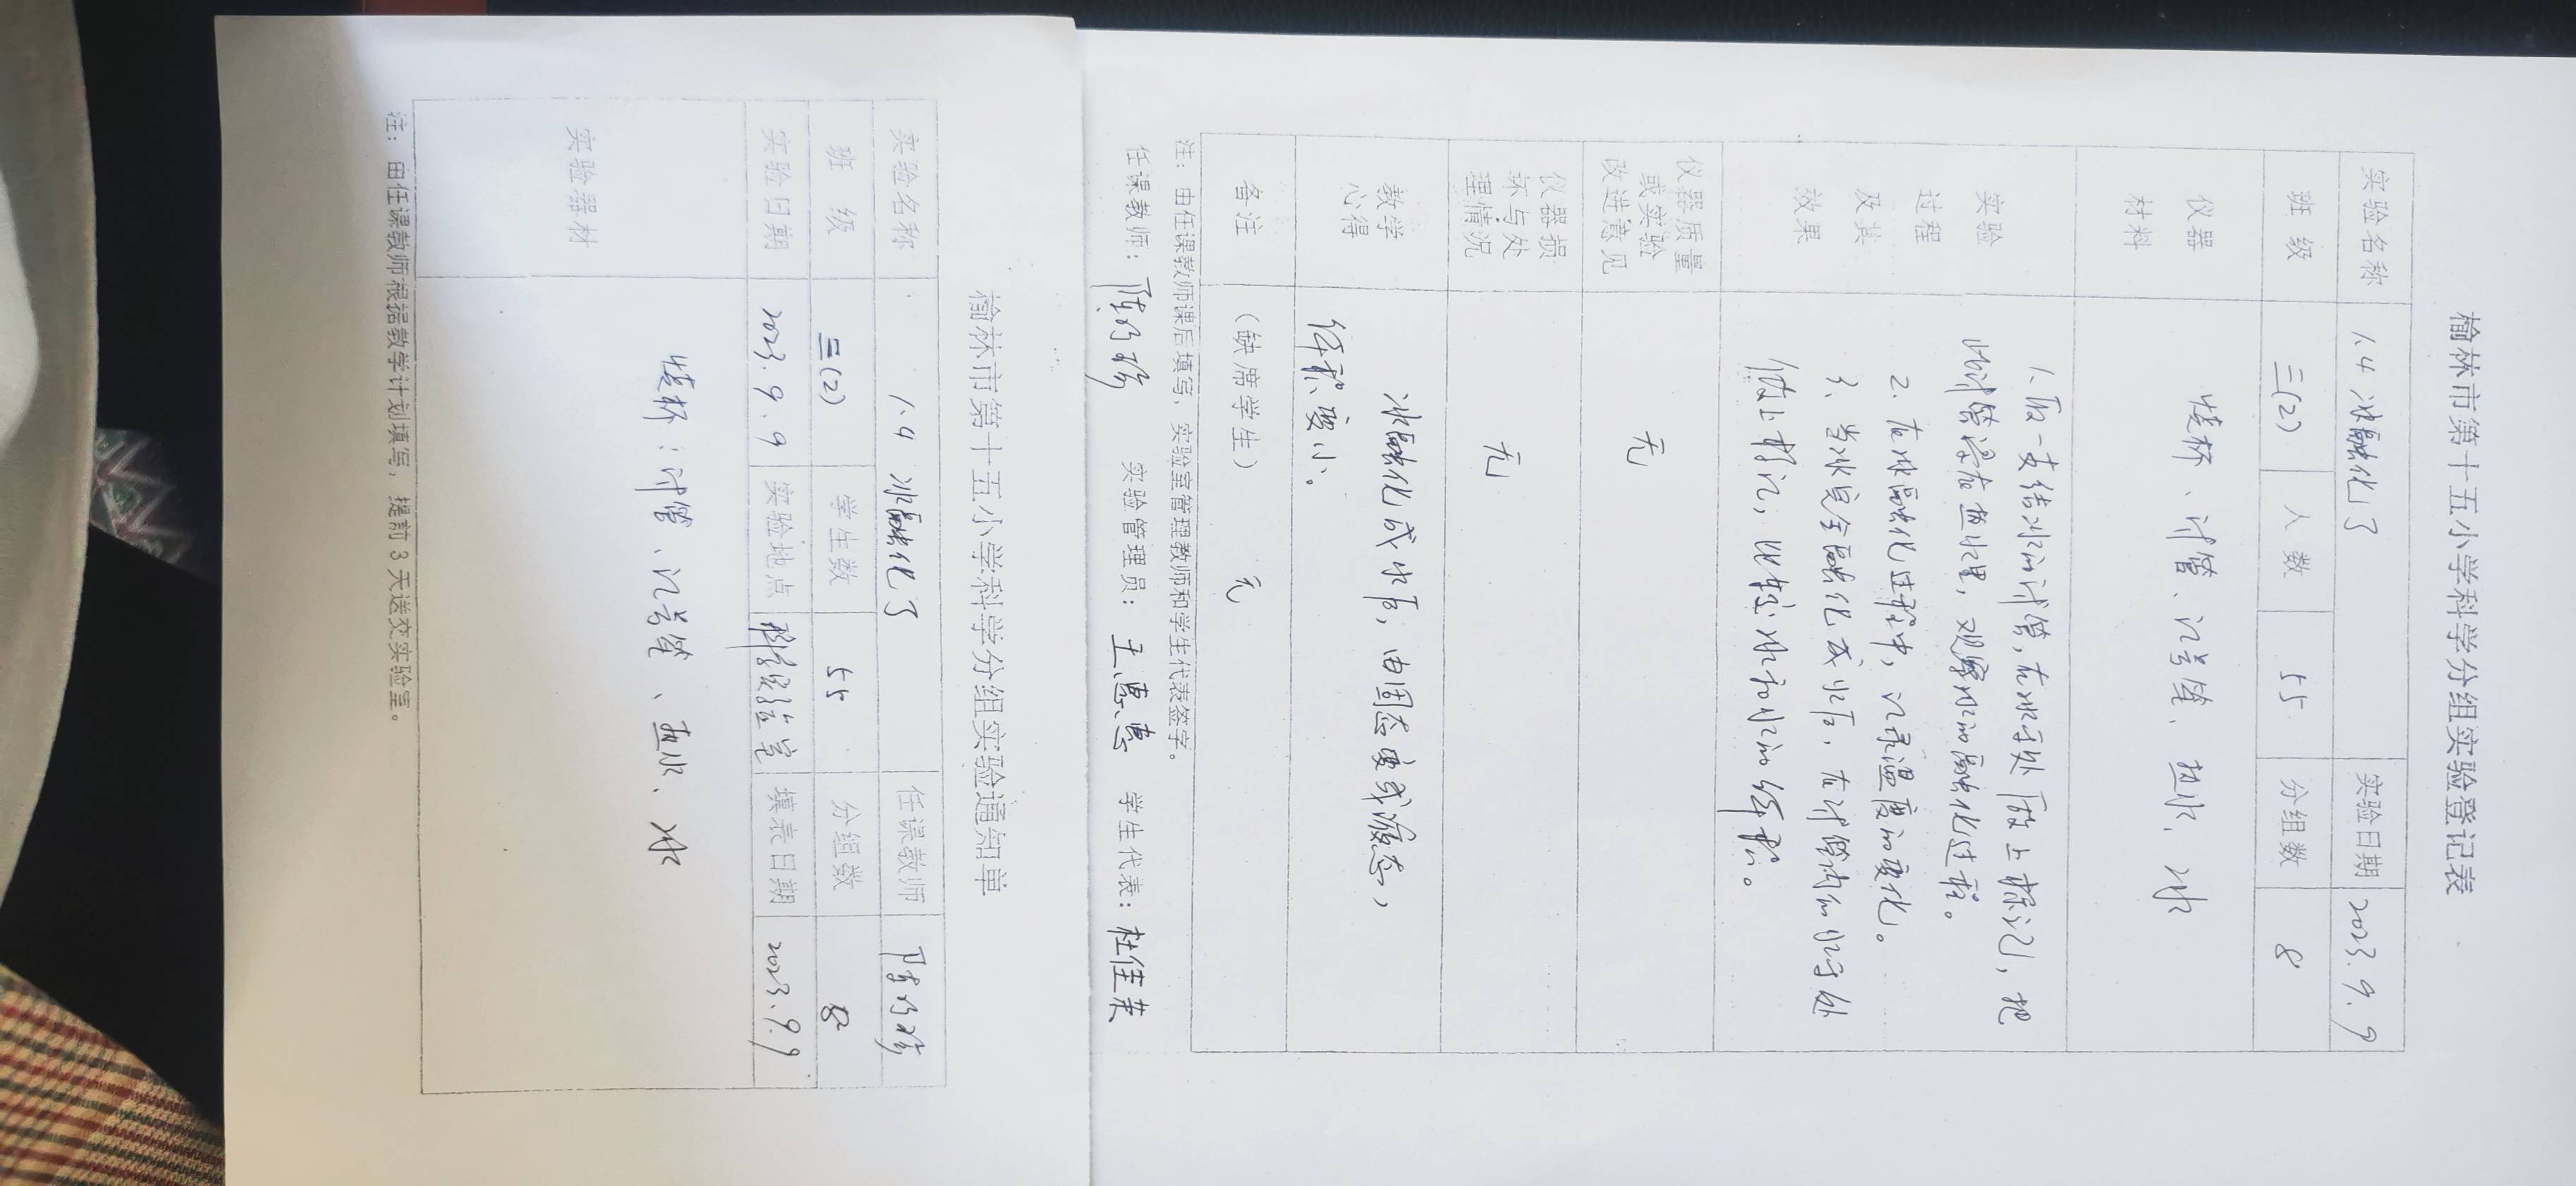 榆林市第十五小学科学分组实验登记表
实验名称 1.4 冰融化了 实验日期 2023.9.9
班级 三(2) 人数 55 分组数 8
仪器材料 烧杯、试管、记号笔、热水、冰
实验过程及其效果
1、取一支结冰的试管,在冰面处做上标记,把
此试管浸在热水里,观察冰的融化过程。
2. 在冰融化过程中,记录温度的变化。
3、当冰完全融化成水后,在试管内的水面处
做上标记,比较冰和水的体积。
仪器质量或实验改进意见 无
仪器损坏与处理情况 无
教学心得 冰融化成水后,由固态变成液态,
体积变小。
备注 (缺席学生) 无
注:由任课教师课后填写,实验室管理教师和学生代表签字。
任课教师: 实验管理员:王惠惠 学生代表:杜佳芙
榆林市第十五小学科学分组实验通知单
实验名称 1.4 冰融化了 任课教师
班级 三(2) 学生数 55 分组数 8
实验日期 2023.9.9 实验地点 科学实验室 填表日期 2023.9.9
实验器材 烧杯、试管、记号笔、热水、冰
注:由任课教师根据教学计划填写,提前3天送交实验室。